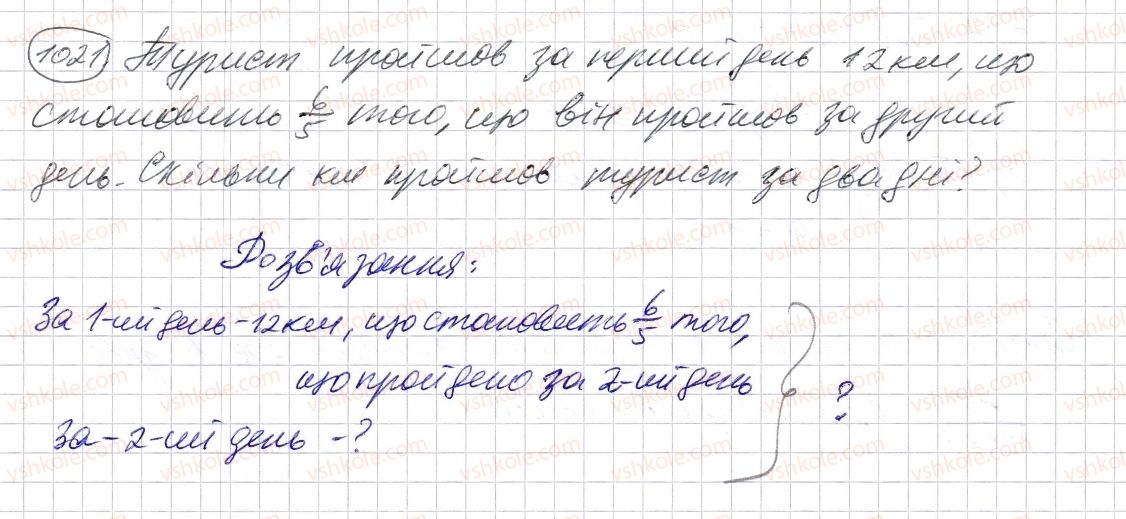 1021. Турист пройшов за перший день 12 км, що
становить 6/5 того, що він пройшов за другий
день. Скільки км пройшов турист за два дні?
Розв'язання:
За 1-ий день - 12 км, що становить 6/5 того,
що пройдено за 2-ий день
?
За - 2-ий день - ?
vshkole.com